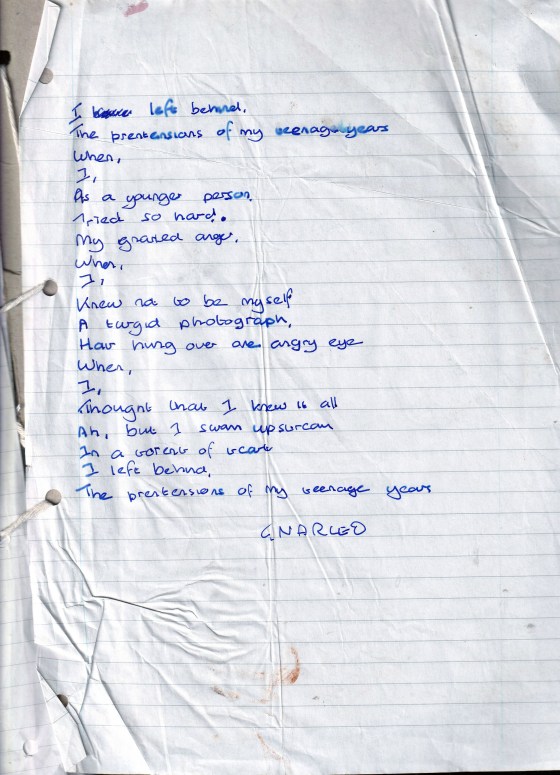 I left behind.
The prentensions of my teenage years
When,
I,
As a younger person,
Tried so hard.
My anger.
When,
I,
Knew not to be myself
A turgid photograph,
Hair hung over one angry eye
When,
I,
Thought that I knew it all
Ah, but I swam upstream
In a torent of
I left behind,
The prentensions of my teenage years
GNARLED